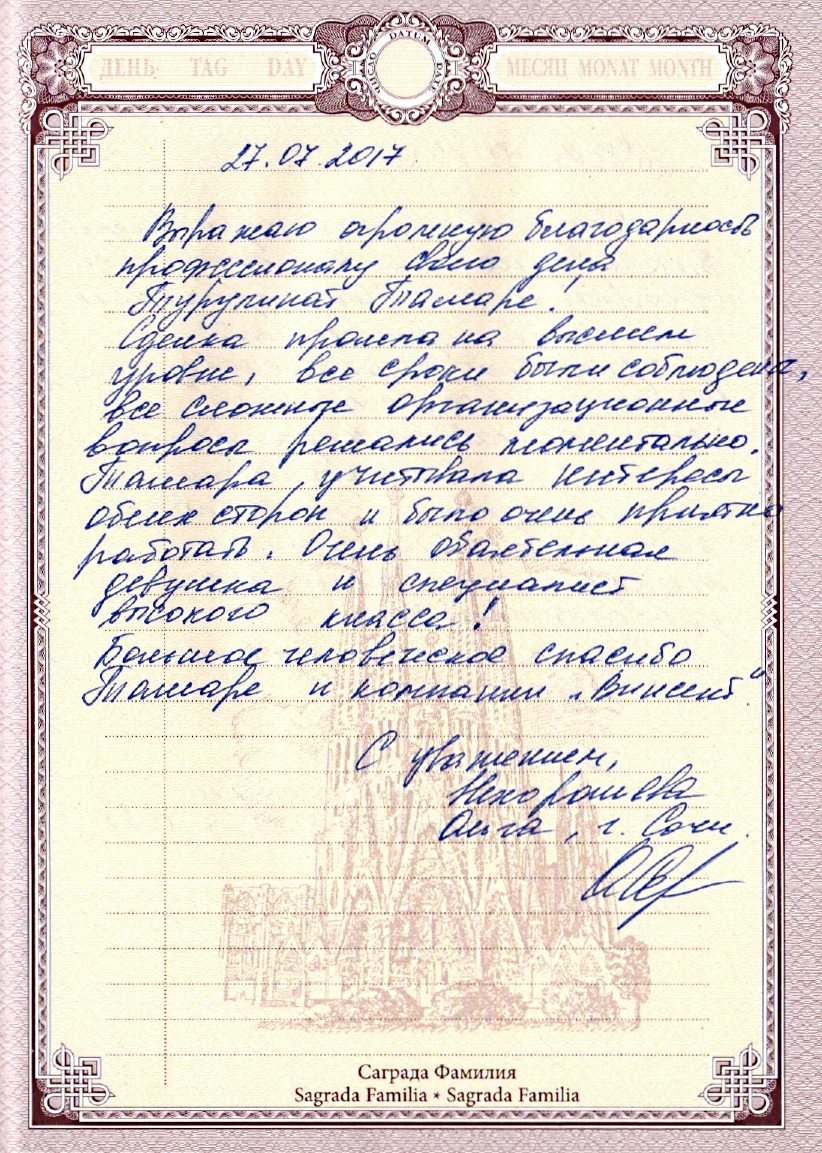 ДЕНЬ TAG DAY
ЧИСЛО DATUM DATE
МЕСЯЦ MONAT MONTH
27.07.2017
Выражаю огромную благодарность
профессионалу своего дела
Тамаре!
Сделка прошла на высшем
уровне, все сроки были соблюдены,
все сложные организационные
вопросы решались моментально.
Тамара учитывала интересы
обеих сторон и было очень приятно
работать. Очень обаятельная
девушка и специалист
высокого класса!
Большое человеческое спасибо
Тамаре и компании „Винсент."
С уважением,
Нехорошева
Ольга, г. Сочи.
Саграда Фамилия
Sagrada Familia * Sagrada Familia